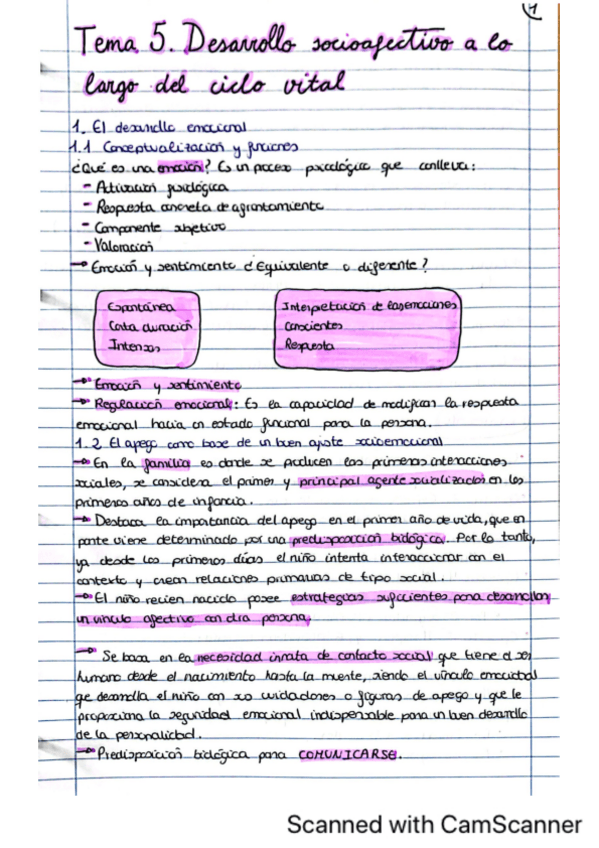 1
Tema 5. Desarrollo socioafectivo a lo
largo del ciclo vital
1. El desarrollo emocional
1.1 Conceptualización y funciones
¿Qué es una emoción? Es un proceso psicológico que conlleva:
- Activación fisiológica
- Respuesta concreta de agrontamiento
- Componente subjetivo
- Valoración
→ Emoción y sentimiento ¿Equivalente o diferente?
Espontánea
Corta duración
Intensas
Interpretación de las emociones
Conscientes
Respuesta
→ Emoción y sentimiento
→ Regulación emocional: Es la capacidad de modificar la respuesta
emocional hacia un estado funcional para la persona.
1.2 El apego como base de un buen ajuste socioemocional
→ En la familia es donde se producen las primeras interacciones
sociales, se considera el primer y principal agente socializador en los
primeros años de infancia.
→ Destaca la importancia del apego en el primer año de vida, que en
parte viene determinado por una predisposición biológica. Por lo tanto,
ya desde los primeros días el niño intenta interaccionar con el
contexto y crean relaciones primarias de tipo social.
→ El niño recien nacido posee estrategias suficientes para desarrollar
un vínculo afectivo con otra persona.
→ Se basa en la necesidad innata de contacto social que tiene el ser
humano desde el nacimiento hasta la muerte, siendo el vínculo emocional
que desarrolla el niño con sus cuidadores o figuras de apego y que le
proporciona la seguridad emocional indispensable para un buen desarrollo
de la personalidad.
→ Predisposición biológica para COMUNICARSE.
Scanned with CamScanner